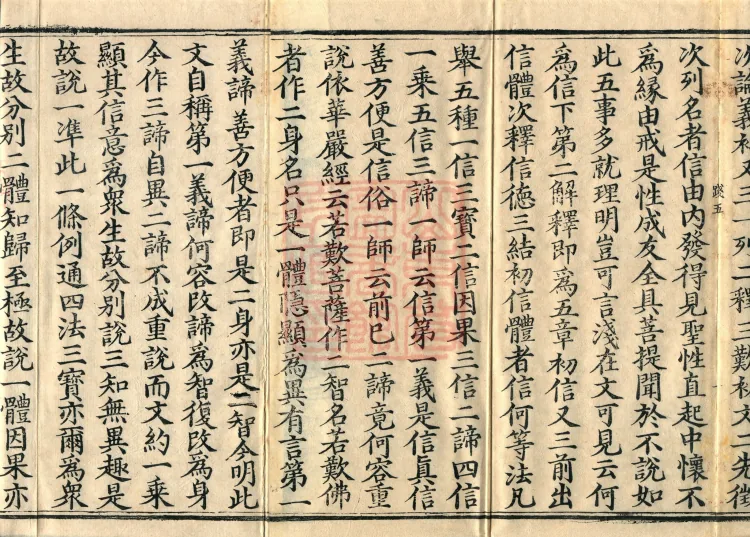 次論義初文三一列二釋三歎初文二先徵
次列名者信由內發得見聖性直起中懷不
爲緣由戒是性成友全具菩提聞於不說如
此五事多就理明豈可言淺在文可見云何
爲信下第二解釋即爲五章初信又三前出
信體次釋信德三結初信體者信何等法凡
舉五種一信三寶二信因果三信二諦四信
一乘五信三諦一師云信第一義是信真信
善方便是信俗一師云前已二諦竟何容重
說依華嚴經云若歎菩薩作二智名若歎佛
者作二身名只是一體隱顯爲異有言第一
義諦善方便者即是二身亦是二智今明此
文自稱第一義諦何容改諦爲智復改爲身
今作三諦自異二諦不成重說而文約一乘
顯其信意爲衆生故分別說三知無異趣是
故說一准此一條例通四法三寶亦爾爲衆
生故分別二體知歸至極故說一體因果亦